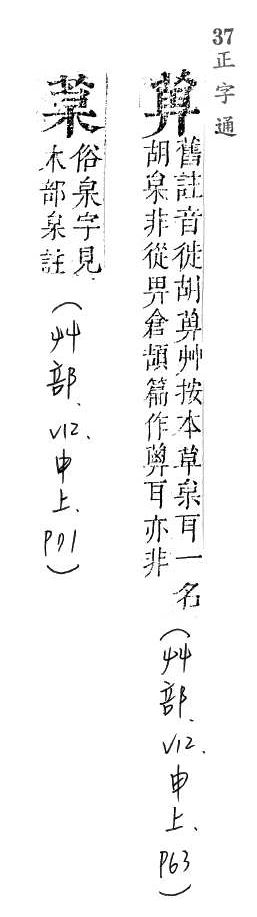 37正字通
舊註音徙胡艸按本草枲耳一名
胡枲非從畀倉頡篇作耳亦非
(艸部、V12、申上、P63)
葈
俗枲字見
木部枲註
(艸部、V12、申上、P71)